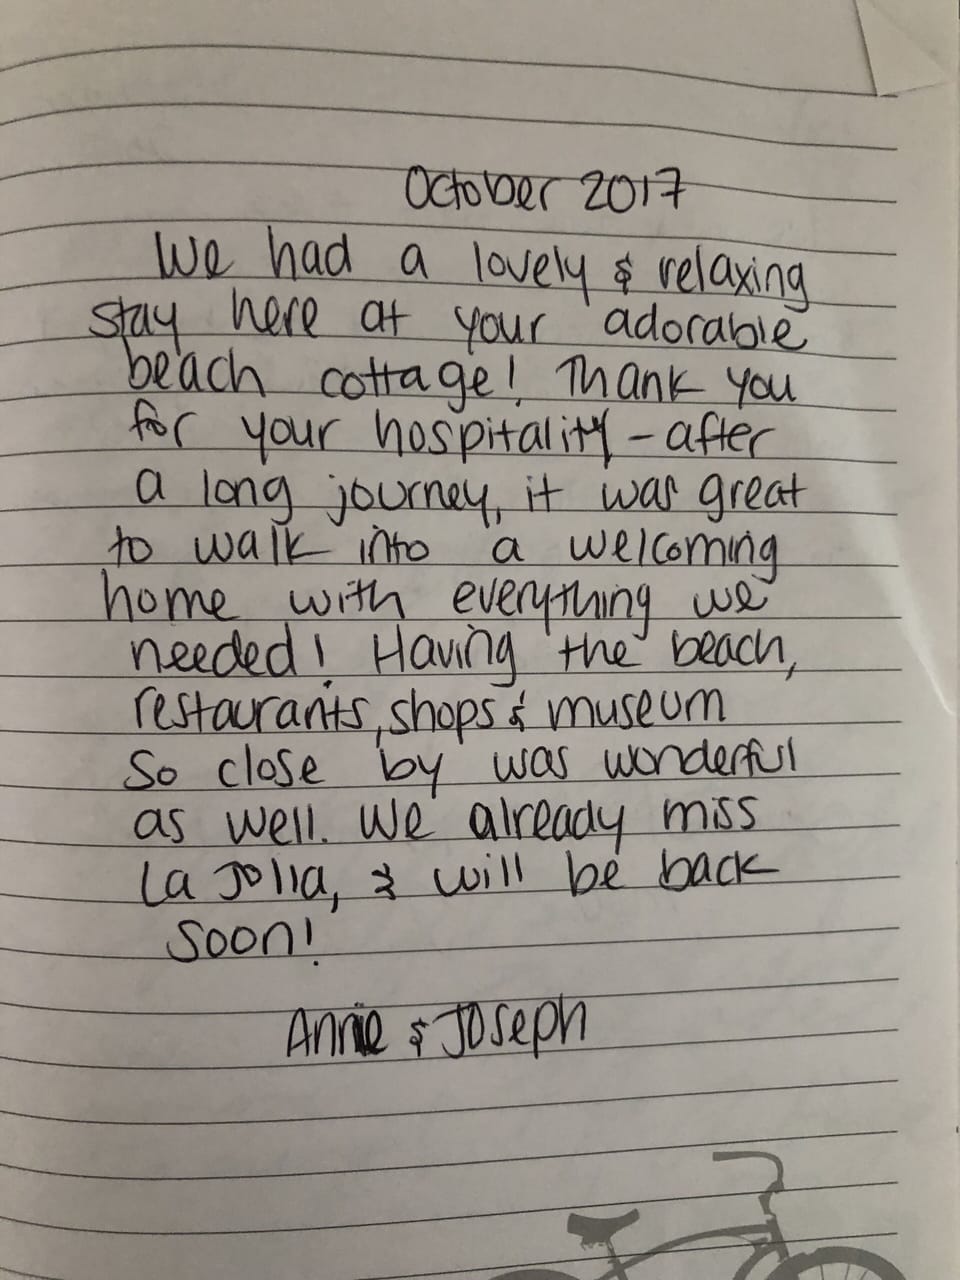 October 2017
We had a lovely & relaxing
stay here at your adorable
beach cottage! Thank you
for your hospitality - after
a long journey, it was great
to walk into a welcoming
home with everything we
needed! Having the beach,
restaurants, shops & museum
so close by was wonderful
as well. We already miss
La Jolla, & will be back
soon!
Annie & Joseph